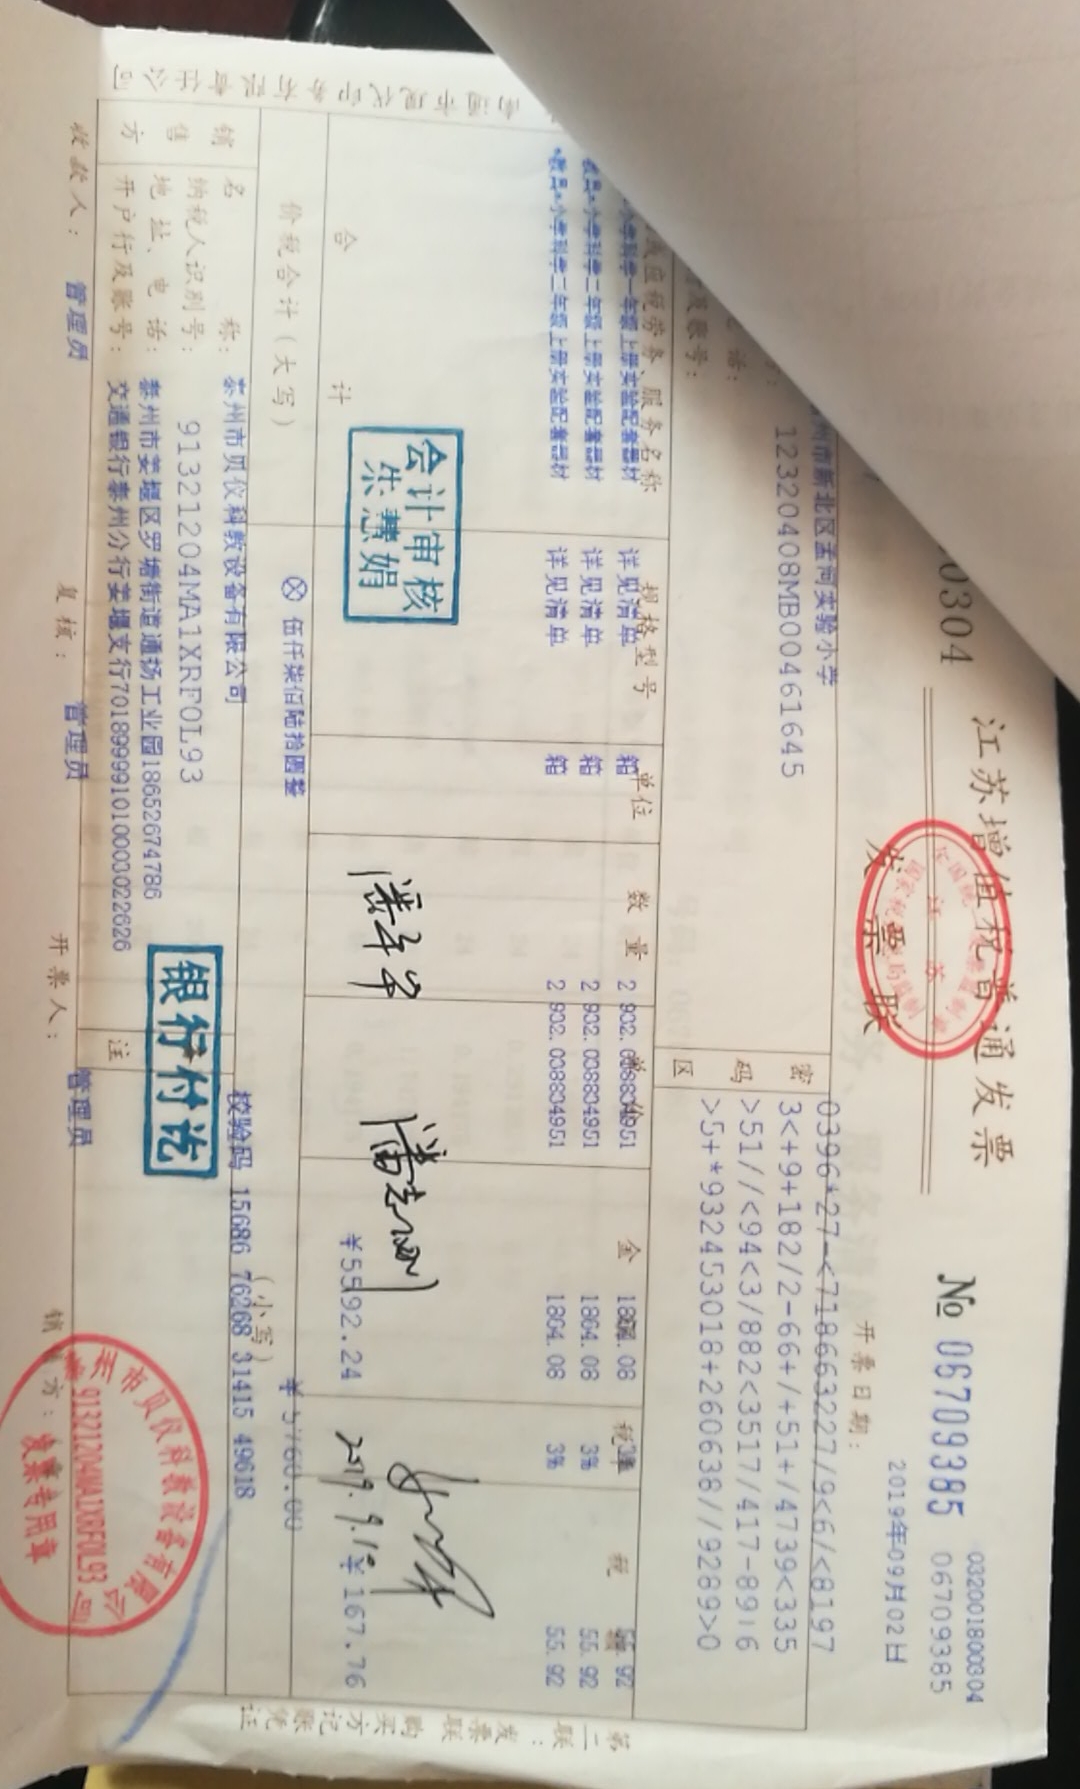 江苏增值税普通发票
发票联
全国统一发票监制章
江苏
国家税务局监制
0304
№ 06709385
032001800304
06709385
开票日期：
2019年09月02日
州市新北区孟河实验小学
12320408MB00461645
话：
及账号：
密码区
0396*27-<718663227/9<6/<8197
3<+9+182/2-66+/+51+/4739<335
>51//<94<3/882<3517/417-8916
>5+*932453018+260638//9289>0
或应税劳务、服务名称 规格型号 单位 数量 单价 金 税率 税
小学科学一年级上册实验配套器材 详见清单 箱 2 932.038834951 1864.08 3% 55.92
教具*小学科学二年级上册实验配套器材 详见清单 箱 2 932.038834951 1864.08 3% 55.92
*教具*小学科学二年级上册实验配套器材 详见清单 箱 2 932.038834951 1864.08 3% 55.92
合计 ¥5592.24 ¥167.76
会计审核
2019.9.1
价税合计（大写） ⊗ 伍仟柒佰陆拾圆整 （小写） ¥5760.00
销售方
名称： 泰州市贝仪科教设备有限公司
纳税人识别号： 91321204MA1XRF0L93
地址、电话： 泰州市姜堰区罗塘街道通扬工业园18652674786
开户行及账号： 交通银行泰州分行姜堰支行701899991010003022626
注
校验码 15686 76268 31415 49618
银行付讫
收款人： 管理员 复核： 管理员 开票人： 管理员 销 方：
州市贝仪科教设备有限公司
91321204MA1XRF0L93
发票专用章
第二联：发票联 购买方记账凭证
南通市现代印务有限责任公司